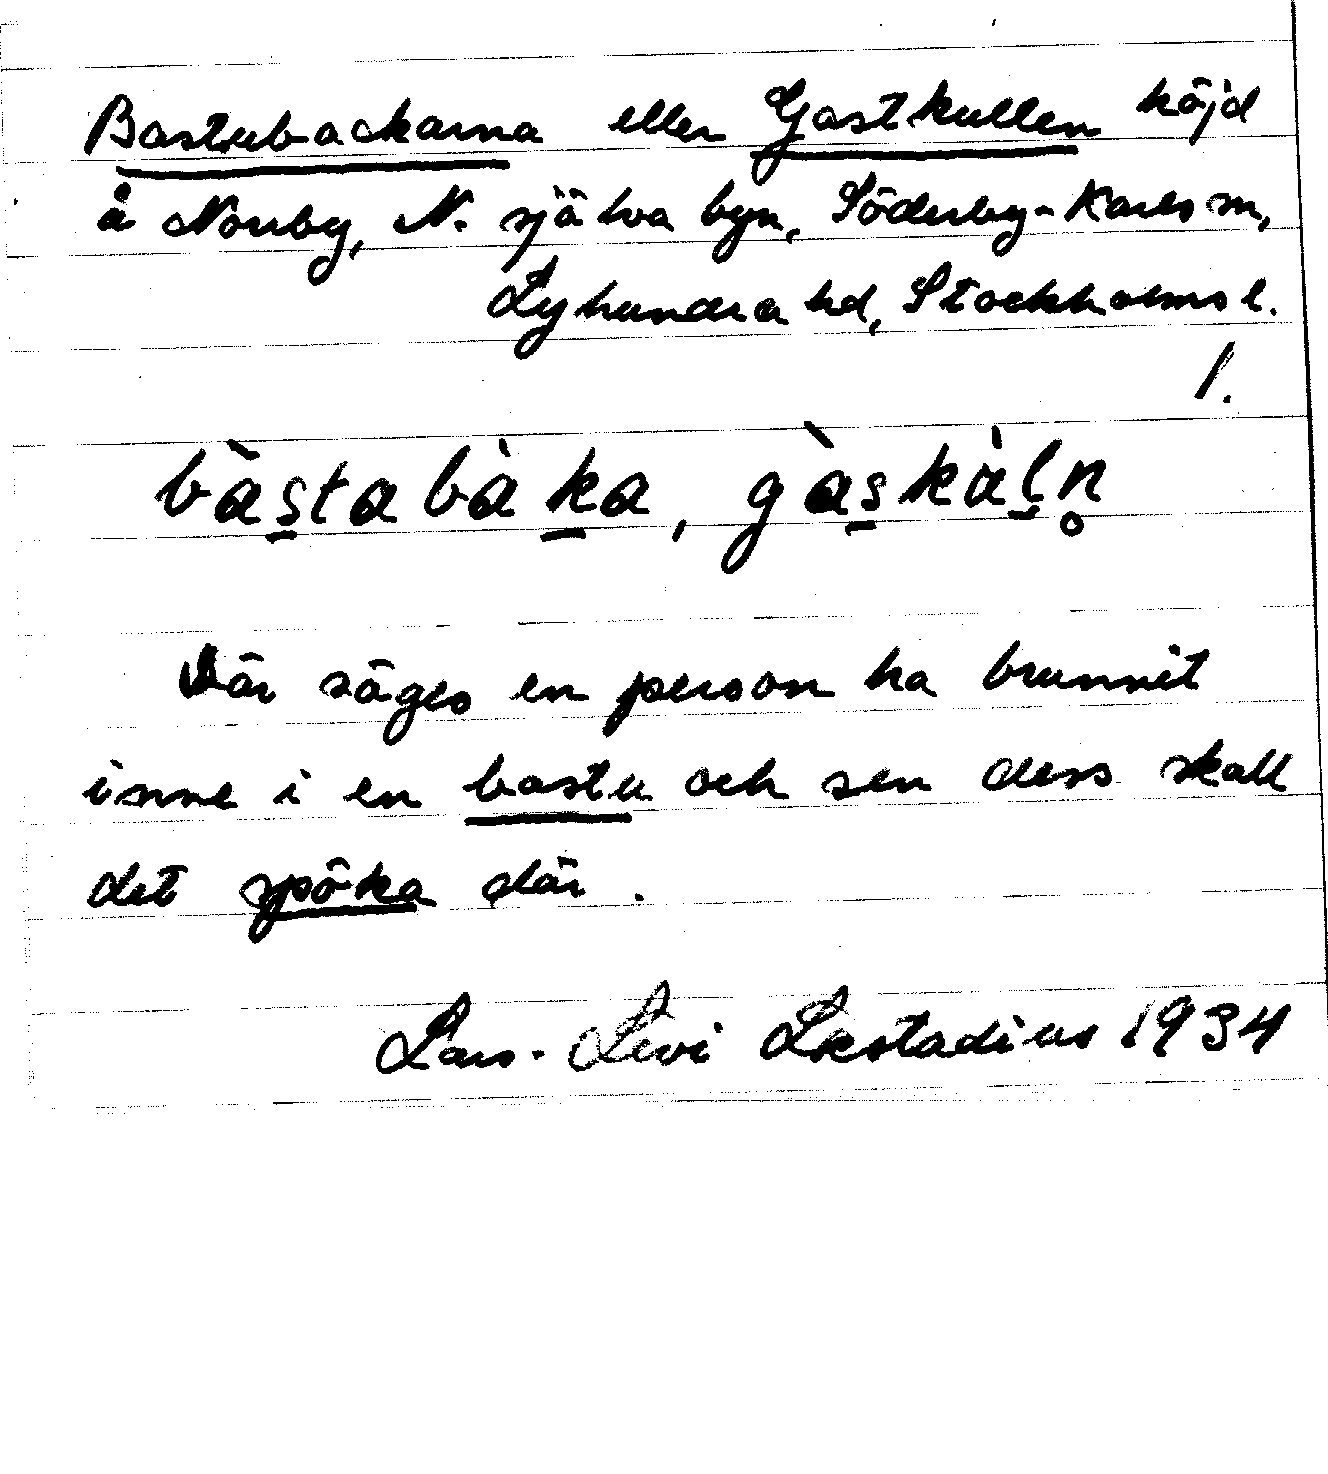 Bastubackarna eller Gastkullen höjd
å Norrby, N. själva byn, Söderby-Karls sn,
Lyhundra hd, Stockholms l.
1.
bàs̠tabàk̠a, gàs̠kàl̠n̥
Där säges en person ha brunnit
inne i en bastu och sen dess skall
det spöka där.
Lars-Levi Læstadius 1934